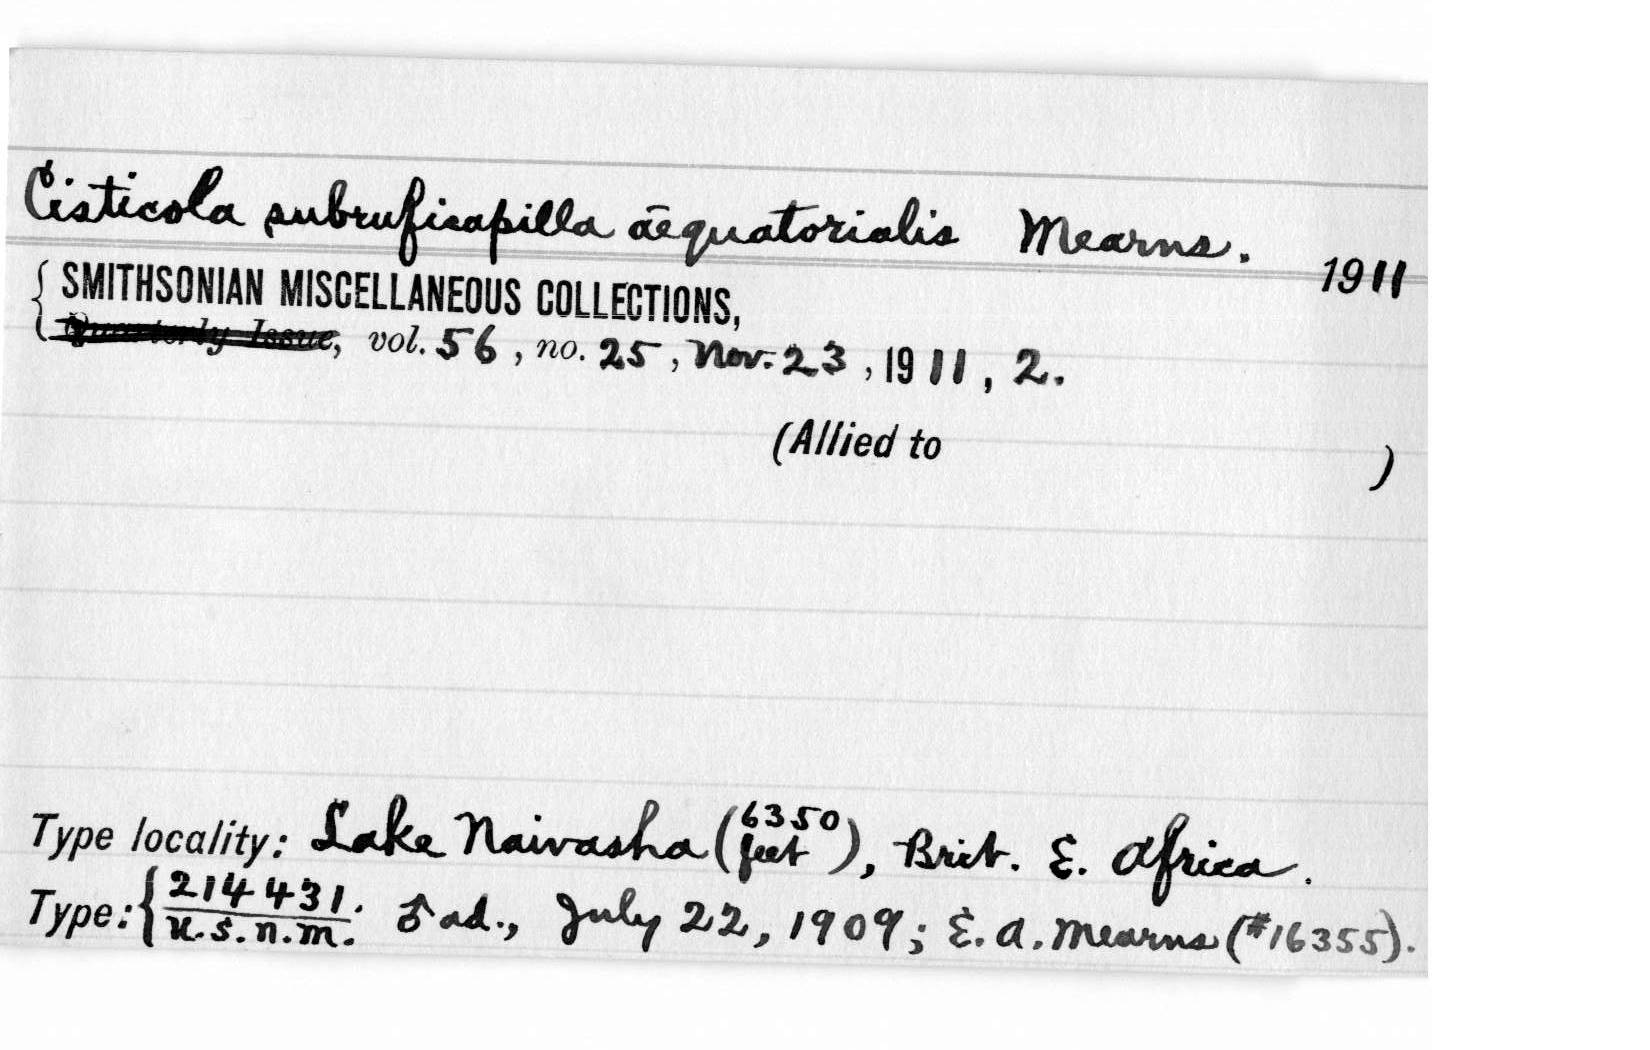 Cisticola subruficapilla æquatorialis Mearns.
1911
SMITHSONIAN MISCELLANEOUS COLLECTIONS,
Quarterly Issue, vol. 56, no. 25, Nov. 23, 1911, 2.
(Allied to )
Type locality: Lake Naivasha (6350 feet), Brit. E. Africa.
Type: { 214431. U.S.N.M. ♂ ad., July 22, 1909; E. A. Mearns (#16355).